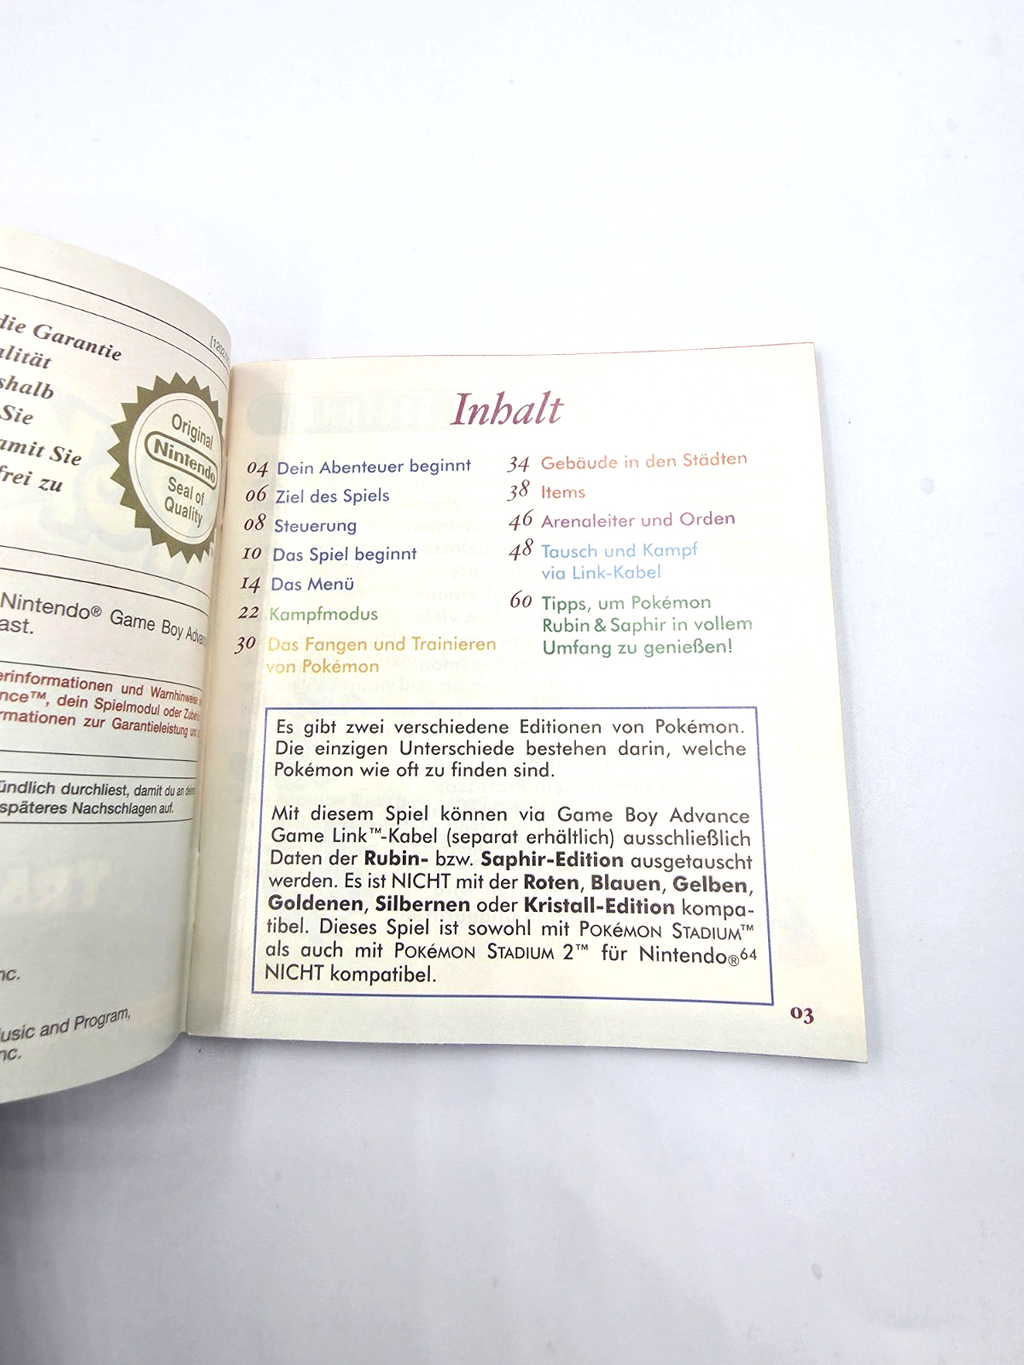 die Garantie
alität
shalb
Sie
amit Sie
frei zu
Original
Nintendo
Seal of
Quality
Nintendo® Game Boy
ast.
erinformationen und Warnhinweise
nce™, dein Spielmodul oder
rmationen zur Garantieleistung
ündlich durchliest, damit du an
späteres Nachschlagen auf.
nc.
Music and Program,
nc.
Inhalt
04 Dein Abenteuer beginnt
06 Ziel des Spiels
08 Steuerung
10 Das Spiel beginnt
14 Das Menü
22 Kampfmodus
30 Das Fangen und Trainieren
von Pokémon
34 Gebäude in den Städten
38 Items
46 Arenaleiter und Orden
48 Tausch und Kampf
via Link-Kabel
60 Tipps, um Pokémon
Rubin & Saphir in vollem
Umfang zu genießen!
Es gibt zwei verschiedene Editionen von Pokémon.
Die einzigen Unterschiede bestehen darin, welche
Pokémon wie oft zu finden sind.
Mit diesem Spiel können via Game Boy Advance
Game Link™-Kabel (separat erhältlich) ausschließlich
Daten der Rubin- bzw. Saphir-Edition ausgetauscht
werden. Es ist NICHT mit der Roten, Blauen, Gelben,
Goldenen, Silbernen oder Kristall-Edition kompa-
tibel. Dieses Spiel ist sowohl mit POKÉMON STADIUM™
als auch mit POKÉMON STADIUM 2™ für Nintendo®64
NICHT kompatibel.
03